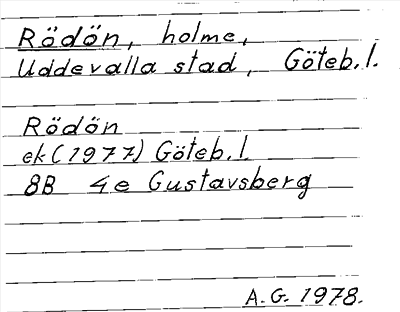 Rödön, holme,
Uddevalla stad, Göteb. l.
Rödön
ek (1977) Göteb. l.
8B 4e Gustavsberg
A. G. 1978.